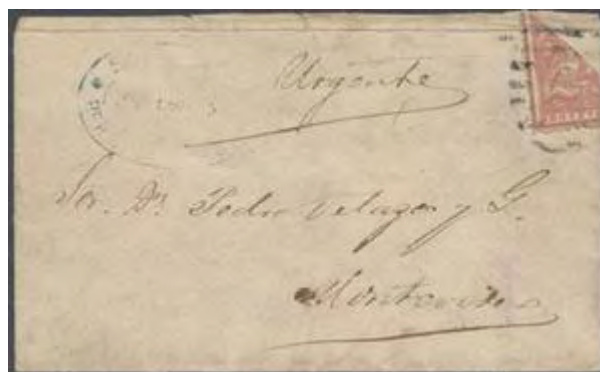 Urgente
Sor. Dn. Pedro Velazco y G.
Montevideo